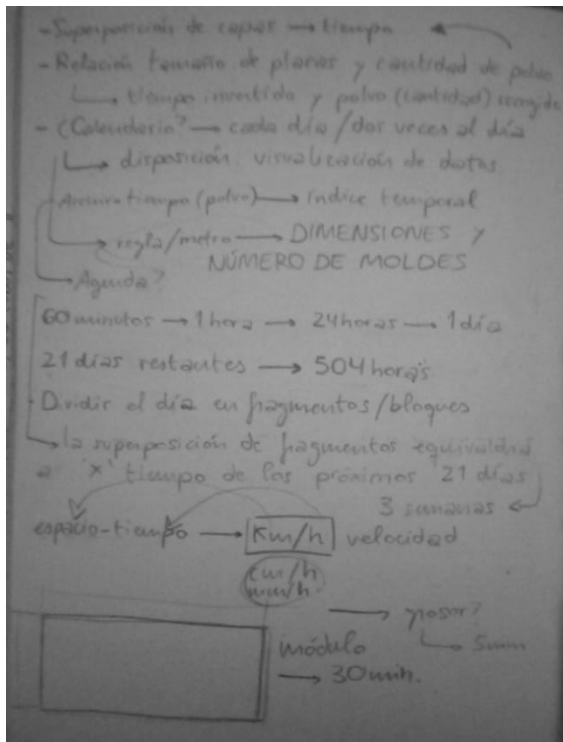 - Superposición de capas → tiempo
- Relación tamaño de placas y cantidad de polvo
↳ tiempo invertido y polvo (cantidad) recogido
- ¿Calendario? → cada día / dos veces al día
↳ disposición visualización de datos
tiempo (polvo) → índice temporal
→ regla/metro → DIMENSIONES Y
NÚMERO DE MOLDES
→ Agenda?
60 minutos → 1 hora → 24 horas → 1 día
21 días restantes → 504 horas
- Dividir el día en fragmentos/bloques
→ la superposición de fragmentos equivaldría
a "x" tiempo de los próximos 21 días
3 semanas
espacio-tiempo → Km/h velocidad
cm/h
mm/h.
→ grosor?
↳ 5mm
módulo
→ 30 min.